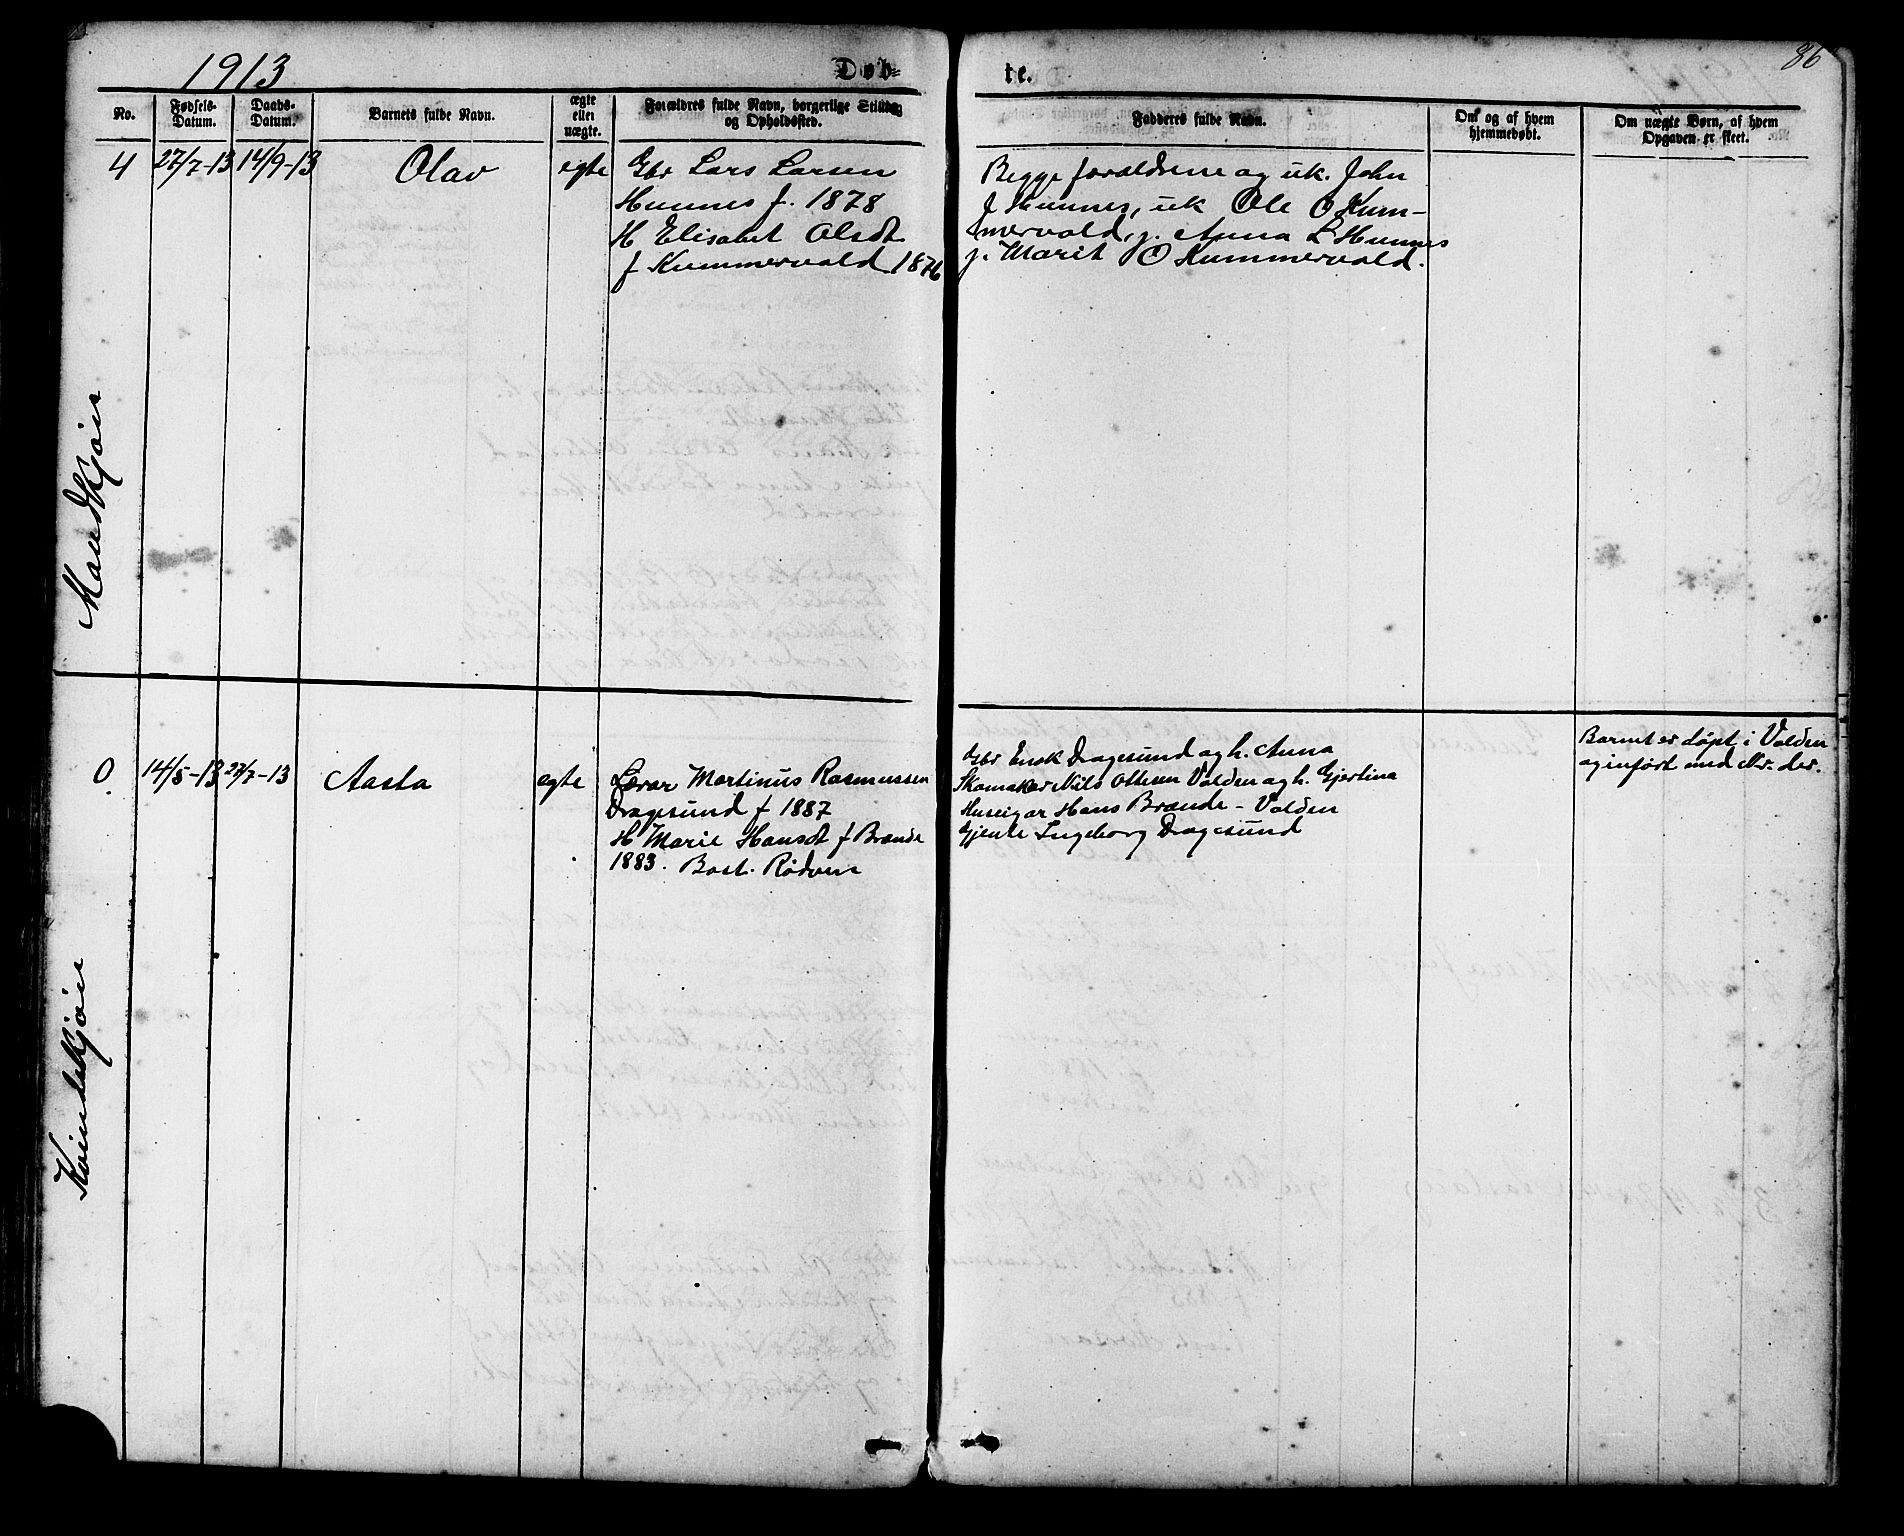 1913
Døb-
te.
86
No.
Fødsels-
Datum.
Daabs-
Datum.
Barnets fulde Navn.
ægte
eller
uægte.
Forældres fulde Navn, borgerlige Stilling
og Opholdssted.
Fadderes fulde Navn.
Om og af hvem
hjemmedøbt.
Om uægte Børn, af hvem
Opgaven er skeet.
Mandkjøn
4 27/7-13 14/9-13 Olav egte
Gbr Lars Larsen
Hunnes f. 1878
H Elisabet Olsdt
f Kummervold 1876
Begge forældrene og uk. John
J Hunnes, uk Ole O Kum-
mervold, p. Anna L Hunnes
p. Marit O Kummervold.
Kvindekjøn
0. 14/5-13 27/7-13 Aasta egte
Lærar Martinus Rasmussen
Dragesund f 1887
H Marie Hansdt f Brænde
1883. Bost. Rødven
Gbr Enok Dragesund og h. Anna
Skomaker Nils Ottesen Volden og h. Gjertina
Huseigar Hans Brænde - Volden
Gjente Ingeborg Dragesund
Barnet er døpt i Volden
og inført med Nr. der.